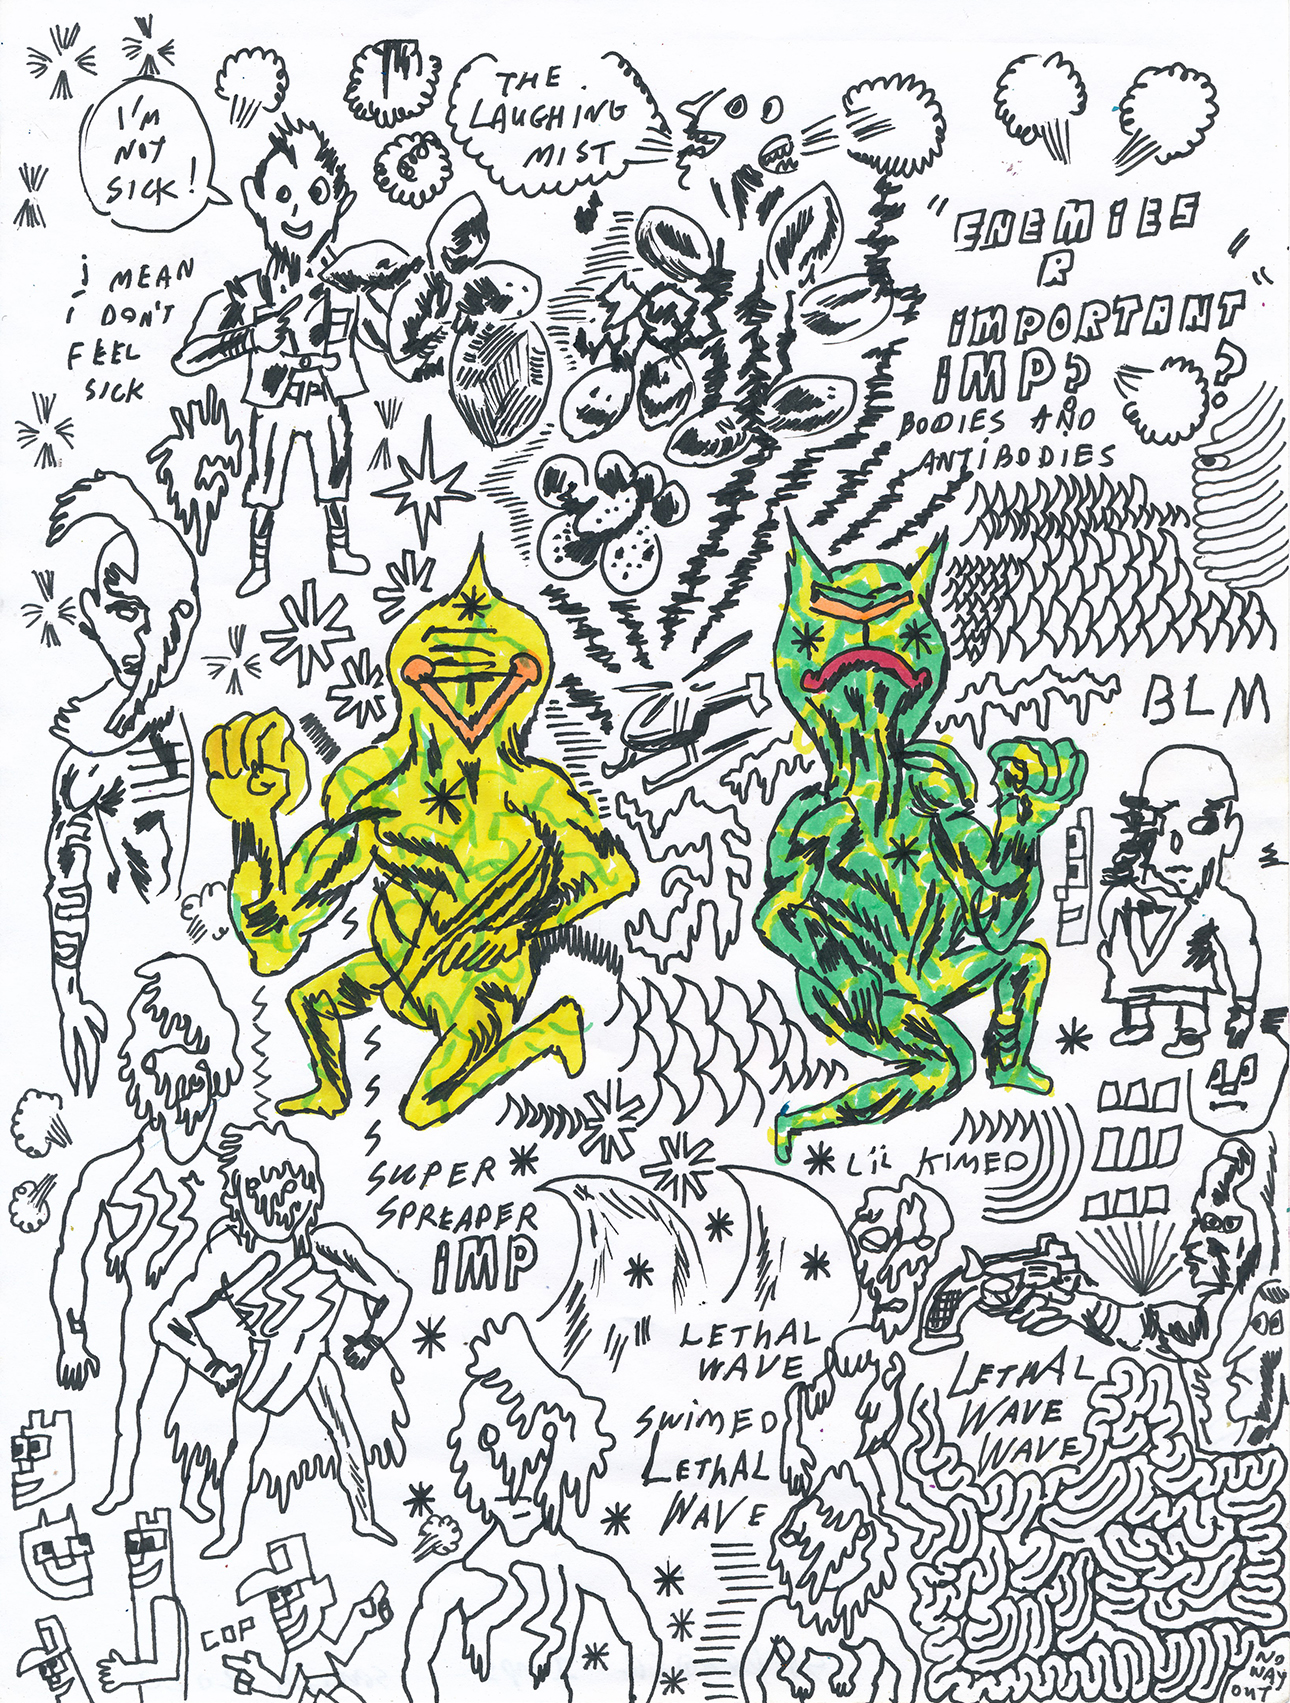 I'M
NOT
SICK!
i MEAN
i DON'T
FEEL
SICK
THE
LAUGHING
MIST
"ENEMIES
R
IMPORTANT"
iMP??
BODIES AND
ANTIBODIES
BLM
SUPER
SPREADER
iMP
LiL KIMED
LETHAL
WAVE
SWIMED
LETHAL
WAVE
LETHAL
WAVE
WAVE
COP
NO
WAY
OUT